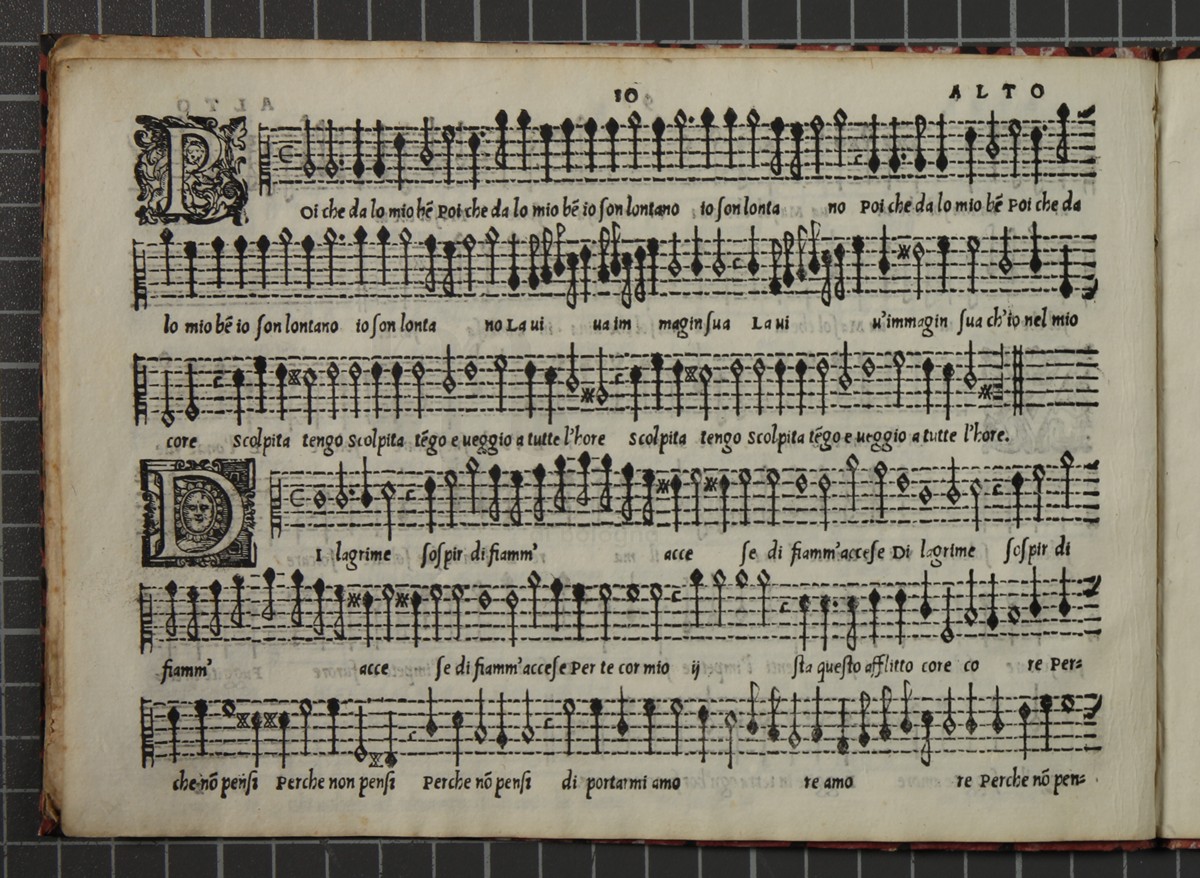 10 ALTO
POi che da lo mio bē Poi che da lo mio bē io son lontano io son lonta no Poi che da lo mio bē Poi che da
lo mio bē io son lontano io son lonta no La ui ua im magin sua La ui u'immagin sua ch'io nel mio
core Scolpita tengo Scolpita tēgo e ueggio a tutte l'hore Scolpita tengo Scolpita tēgo e ueggio a tutte l'hore.
DI lagrime sospir di fiamm' acce se di fiamm'accese Di lagrime sospir di
fiamm' acce se di fiamm'accese Per te cor mio ij sta questo afflitto core co re Per-
che nō pensi Perche non pensi Perche nō pensi di portarmi amo re amo re Perche nō pen-